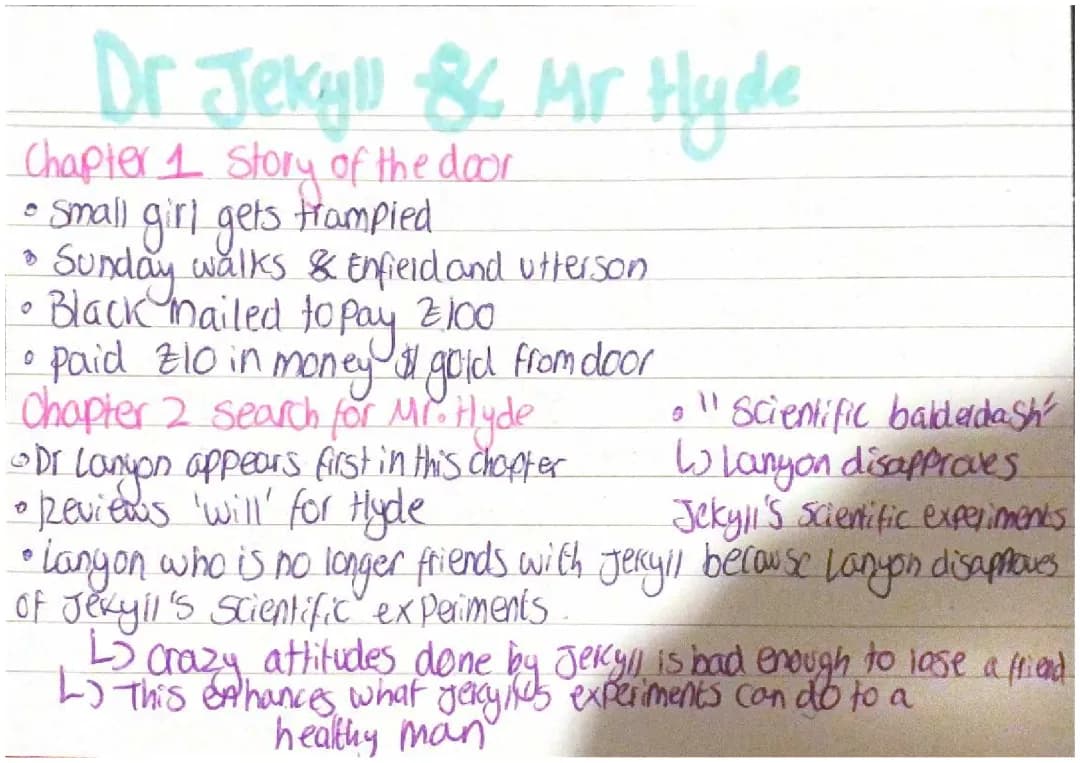 Dr Jekyll & Mr Hyde
Chapter 1 Story of the door
• small girl gets trampled
• Sunday walks & Enfield and Utterson
• Black mailed to pay £100
• paid £10 in money & gold from door
Chapter 2 search for Mr. Hyde
• Dr Lanyon appears first in this chapter
• Reviews 'will' for Hyde
• "Scientific balderdash"
↳ Lanyon disapproves
Jekyll's scientific experiments
• Lanyon who is no longer friends with Jekyll because Lanyon disaproves
of Jekyll's scientific experiments.
↳ crazy attitudes done by Jekyll is bad enough to lose a friend
↳ This enhances what Jekyll's experiments can do to a
healthy man